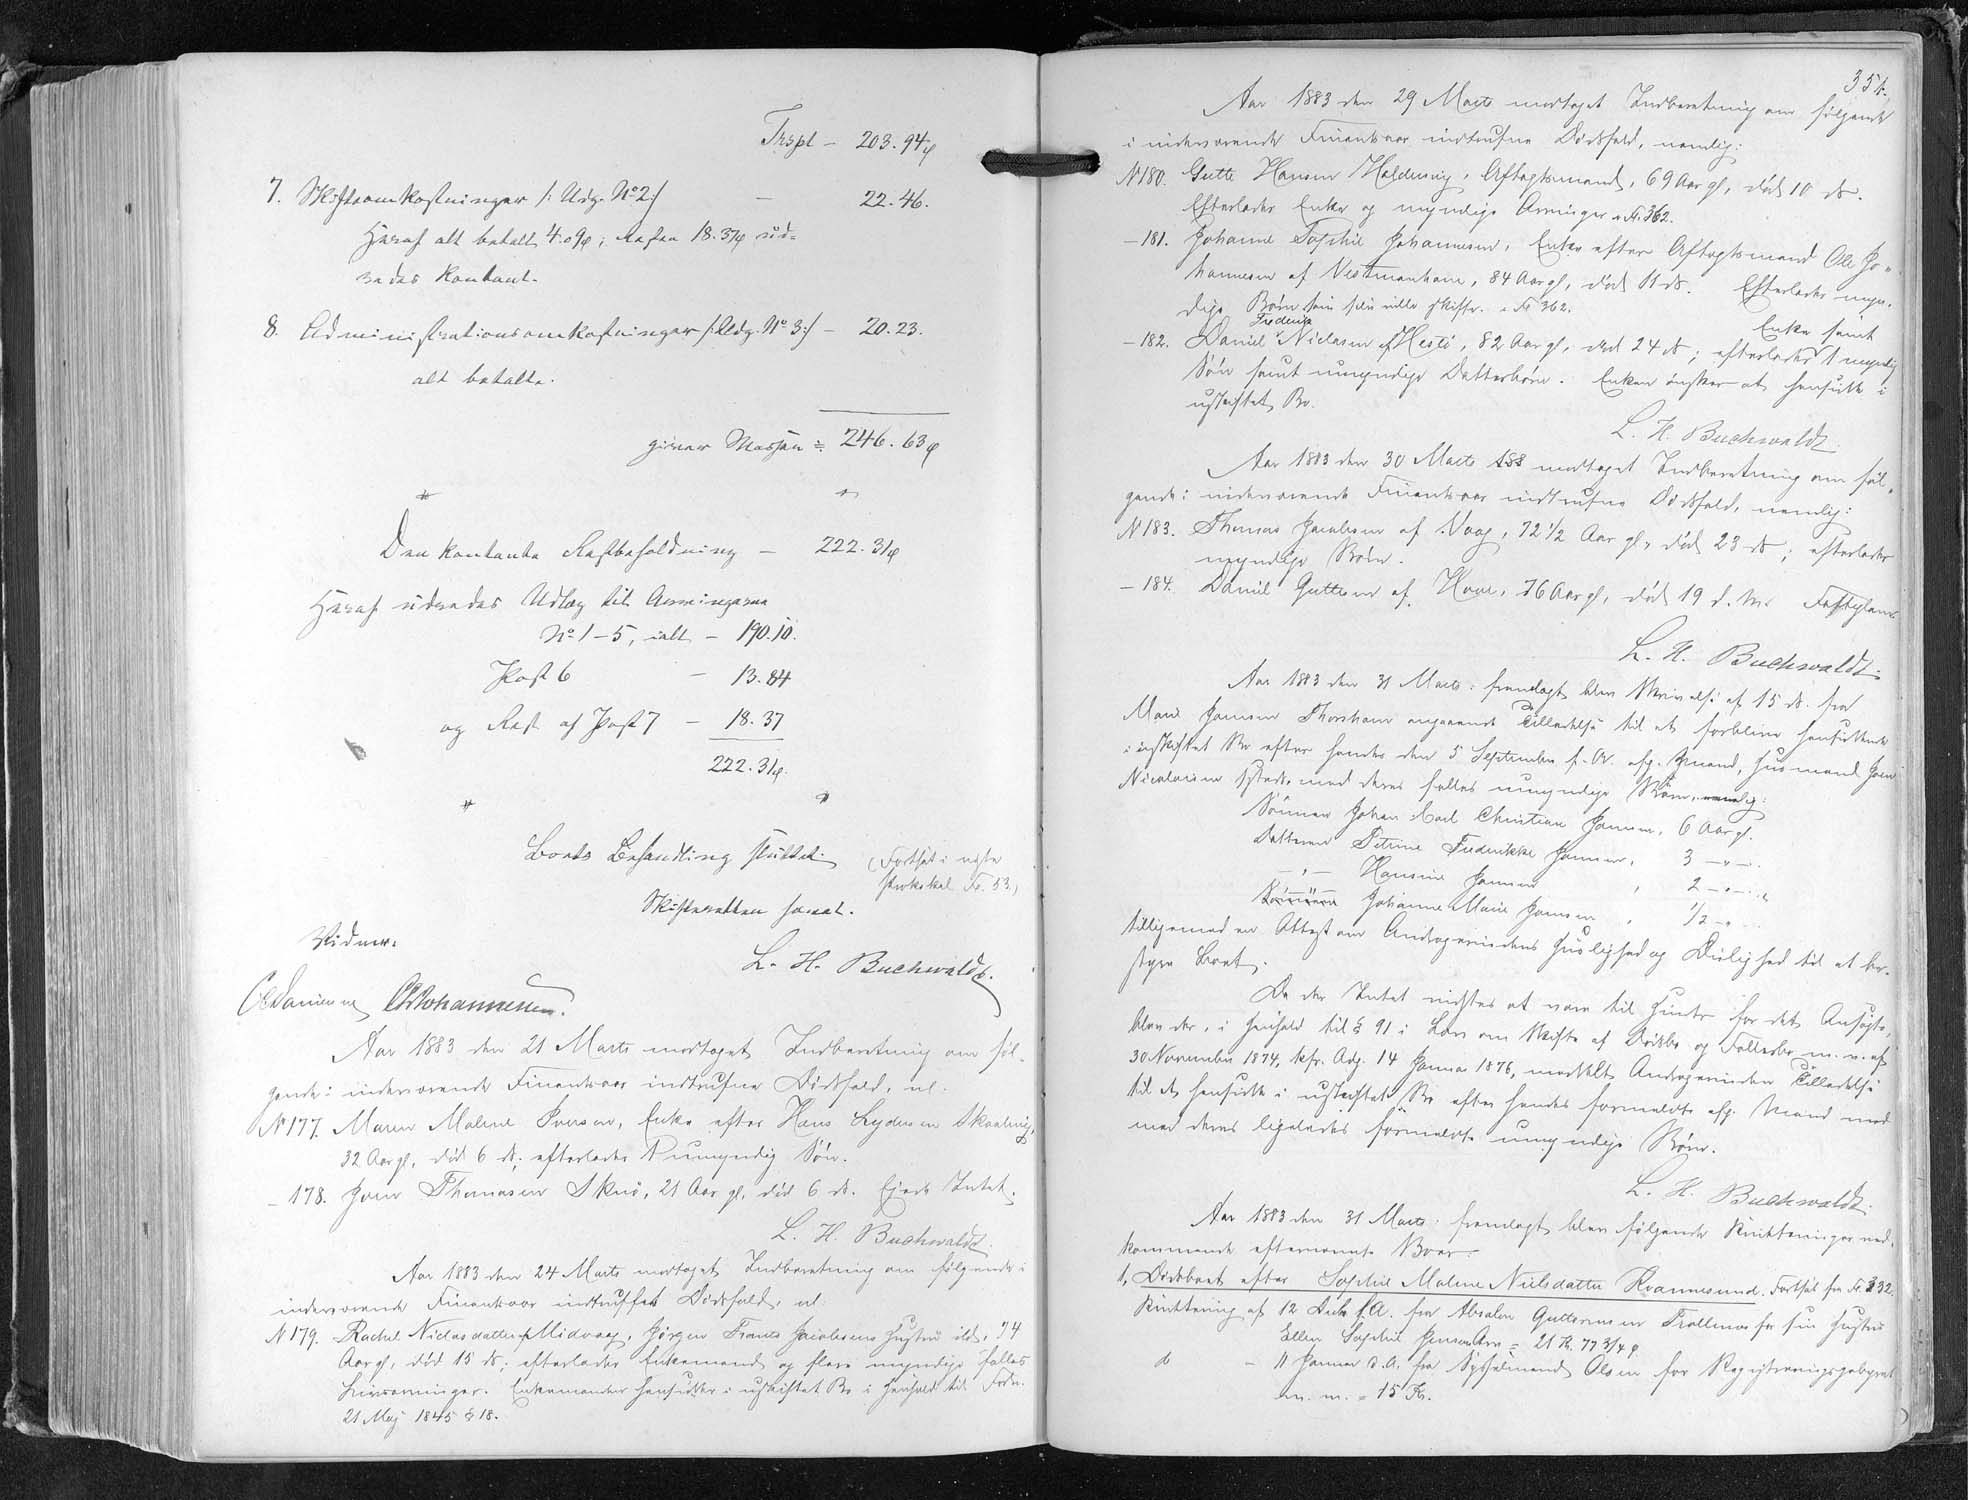 Trspt – 203. 94 ø
7. Skifteomkostninger /: Udg. No 2:/ – 22. 46.
Heraf alt betalt 4.09ø; Resten 18.37ø ud-
redes kontant.
8. Administrationsomkostninger /: Udg. No 3:/ – 20. 23.
alt betalte.
giver Massen = 246. 63ø
Den kontante Restbeholdning – 222. 31ø
Heraf udredes Udlæg til Arvingerne
No 1–5, ialt – 190. 10.
Post 6 – 13. 84
og Rest af Post 7 – 18. 37
222. 31ø.
Boets Behandling sluttet. (Fortsat i næste
Protokol Fo. 53.)
Skifteretten hævet.
Vidner.
L. H. Buchwaldt.
Johannesen.
Aar 1883 den 21 Marts modtaget Indberetning om føl-
gende i indeværende Finantsaar indtrufne Dødsfald, nl.
N 177. Maren Malene Iversen, Enke efter Hans Lydersen Skaalevig,
32 Aar gl., død 6 ds., efterlader 1 umyndig Søn.
– 178. Joen Thomasen Skuø, 21 Aar gl., død 6 ds. Ejede Intet.
L. H. Buchwaldt.
Aar 1883 den 24 Marts modtaget Indberetning om følgende i
indeværende Finantsaar indtruffet Dødsfald, nl.
N 179. Rachel Niclasdatter af Midvaag, Jørgen Frants Jacobsens Hustru ibd., 74
Aar gl., død 15 ds.; efterlader Enkemand og flere myndige fælles
Livsarvinger. Enkemanden hensidder i uskiftet Bo i Henhold til Frdn.
21 Maj 1845 § 18.
351.
Aar 1883 den 29 Marts modtaget Indberetning om følgende
i indeværende Finantsaar indtrufne Dødsfald, nemlig:
N 180. Gutte Hansen Haldersvig, Aftægtsmand, 69 Aar gl., død 10 ds.
Efterlader Enke og myndige Arvinger. Fo. 362.
– 181. Johanne Sophie Johannesen, Enke efter Aftægtsmand Ole Jo-
hannesen af Vestmanhavn, 84 Aar gl., død 11 ds. Efterlader myn-
dige Børn som selv ville skifte. Fo. 362.
Frederik Enke samt
– 182. Daniel Niclasen af Hestø, 82 Aar gl., død 24 ds; efterlader 1 myndig
Søn samt umyndige Datterbørn. Enken ønsker at hensidde i
uskiftet Bo.
L. H. Buchwaldt.
Aar 1883 den 30 Marts modtaget Indberetning om føl-
gende i indeværende Finantsaar indtrufne Dødsfald, nemlig:
N 183. Thomas Jacobsen af Vaag, 72 1/2 Aar gl., død 23 ds; efterlader
myndige Børn.
– 184. Daniel Guttesen af Hove, 76 Aar gl., død 19 d. M.
L. H. Buchwaldt.
Aar 1883 den 31 Marts fremlagt blev Skrivelse af 15 ds. fra
Marie Jansen Thorshavn angaaende Tilladelse til at forblive hensiddende
i uskiftet Bo efter hendes den 5 September f. A. afg. Mand, Huusmand Joen
Nicolaisen med deres fælles umyndige Børn, nemlig:
Sønnen Johan Carl Christian Jansen, 6 Aar gl.
Datteren Petrine Frederikke Jansen, 3 – " –
– " – Hansine Jansen, 2 – " –
– " – Johanne Marie Jansen, 1/2 – " –
tilligemed en Attest om Andragerindens Huuslighed og Duelighed til at be-
styre Boet.
Da der Intet vidstes at være til Hinder for det Ansøgte,
blev der, i Henhold til § 91 i Lov om Skifte af Dødsbo og Fællesbo m. v. af
30 November 1874, kfr. Anj. 14 Januar 1876, meddelt Andragerinden Tilladelse
til at hensidde i uskiftet Bo efter hendes formeldte afg. Mand med
med deres ligeledes formeldte umyndige Børn.
L. H. Buchwaldt.
Aar 1883 den 31 Marts fremlagt blev følgende Kvitteringer ved-
kommende efternævnte Boer.
1, Dødsboet efter Sophie Malene Nielsdatter Qvannesund. Fortsat fra Fo. 332.
Kvittering af 12 f. A. fra Absalon Guttormsen Trøllenæs for sin Hustru
Ellen Sophie Arv = 21 Kr. 77 3/4 ø
do – 11 Januar d. A. fra Sysselmand Olsen for Registreringsgebyret
m. m. = 15 Kr.